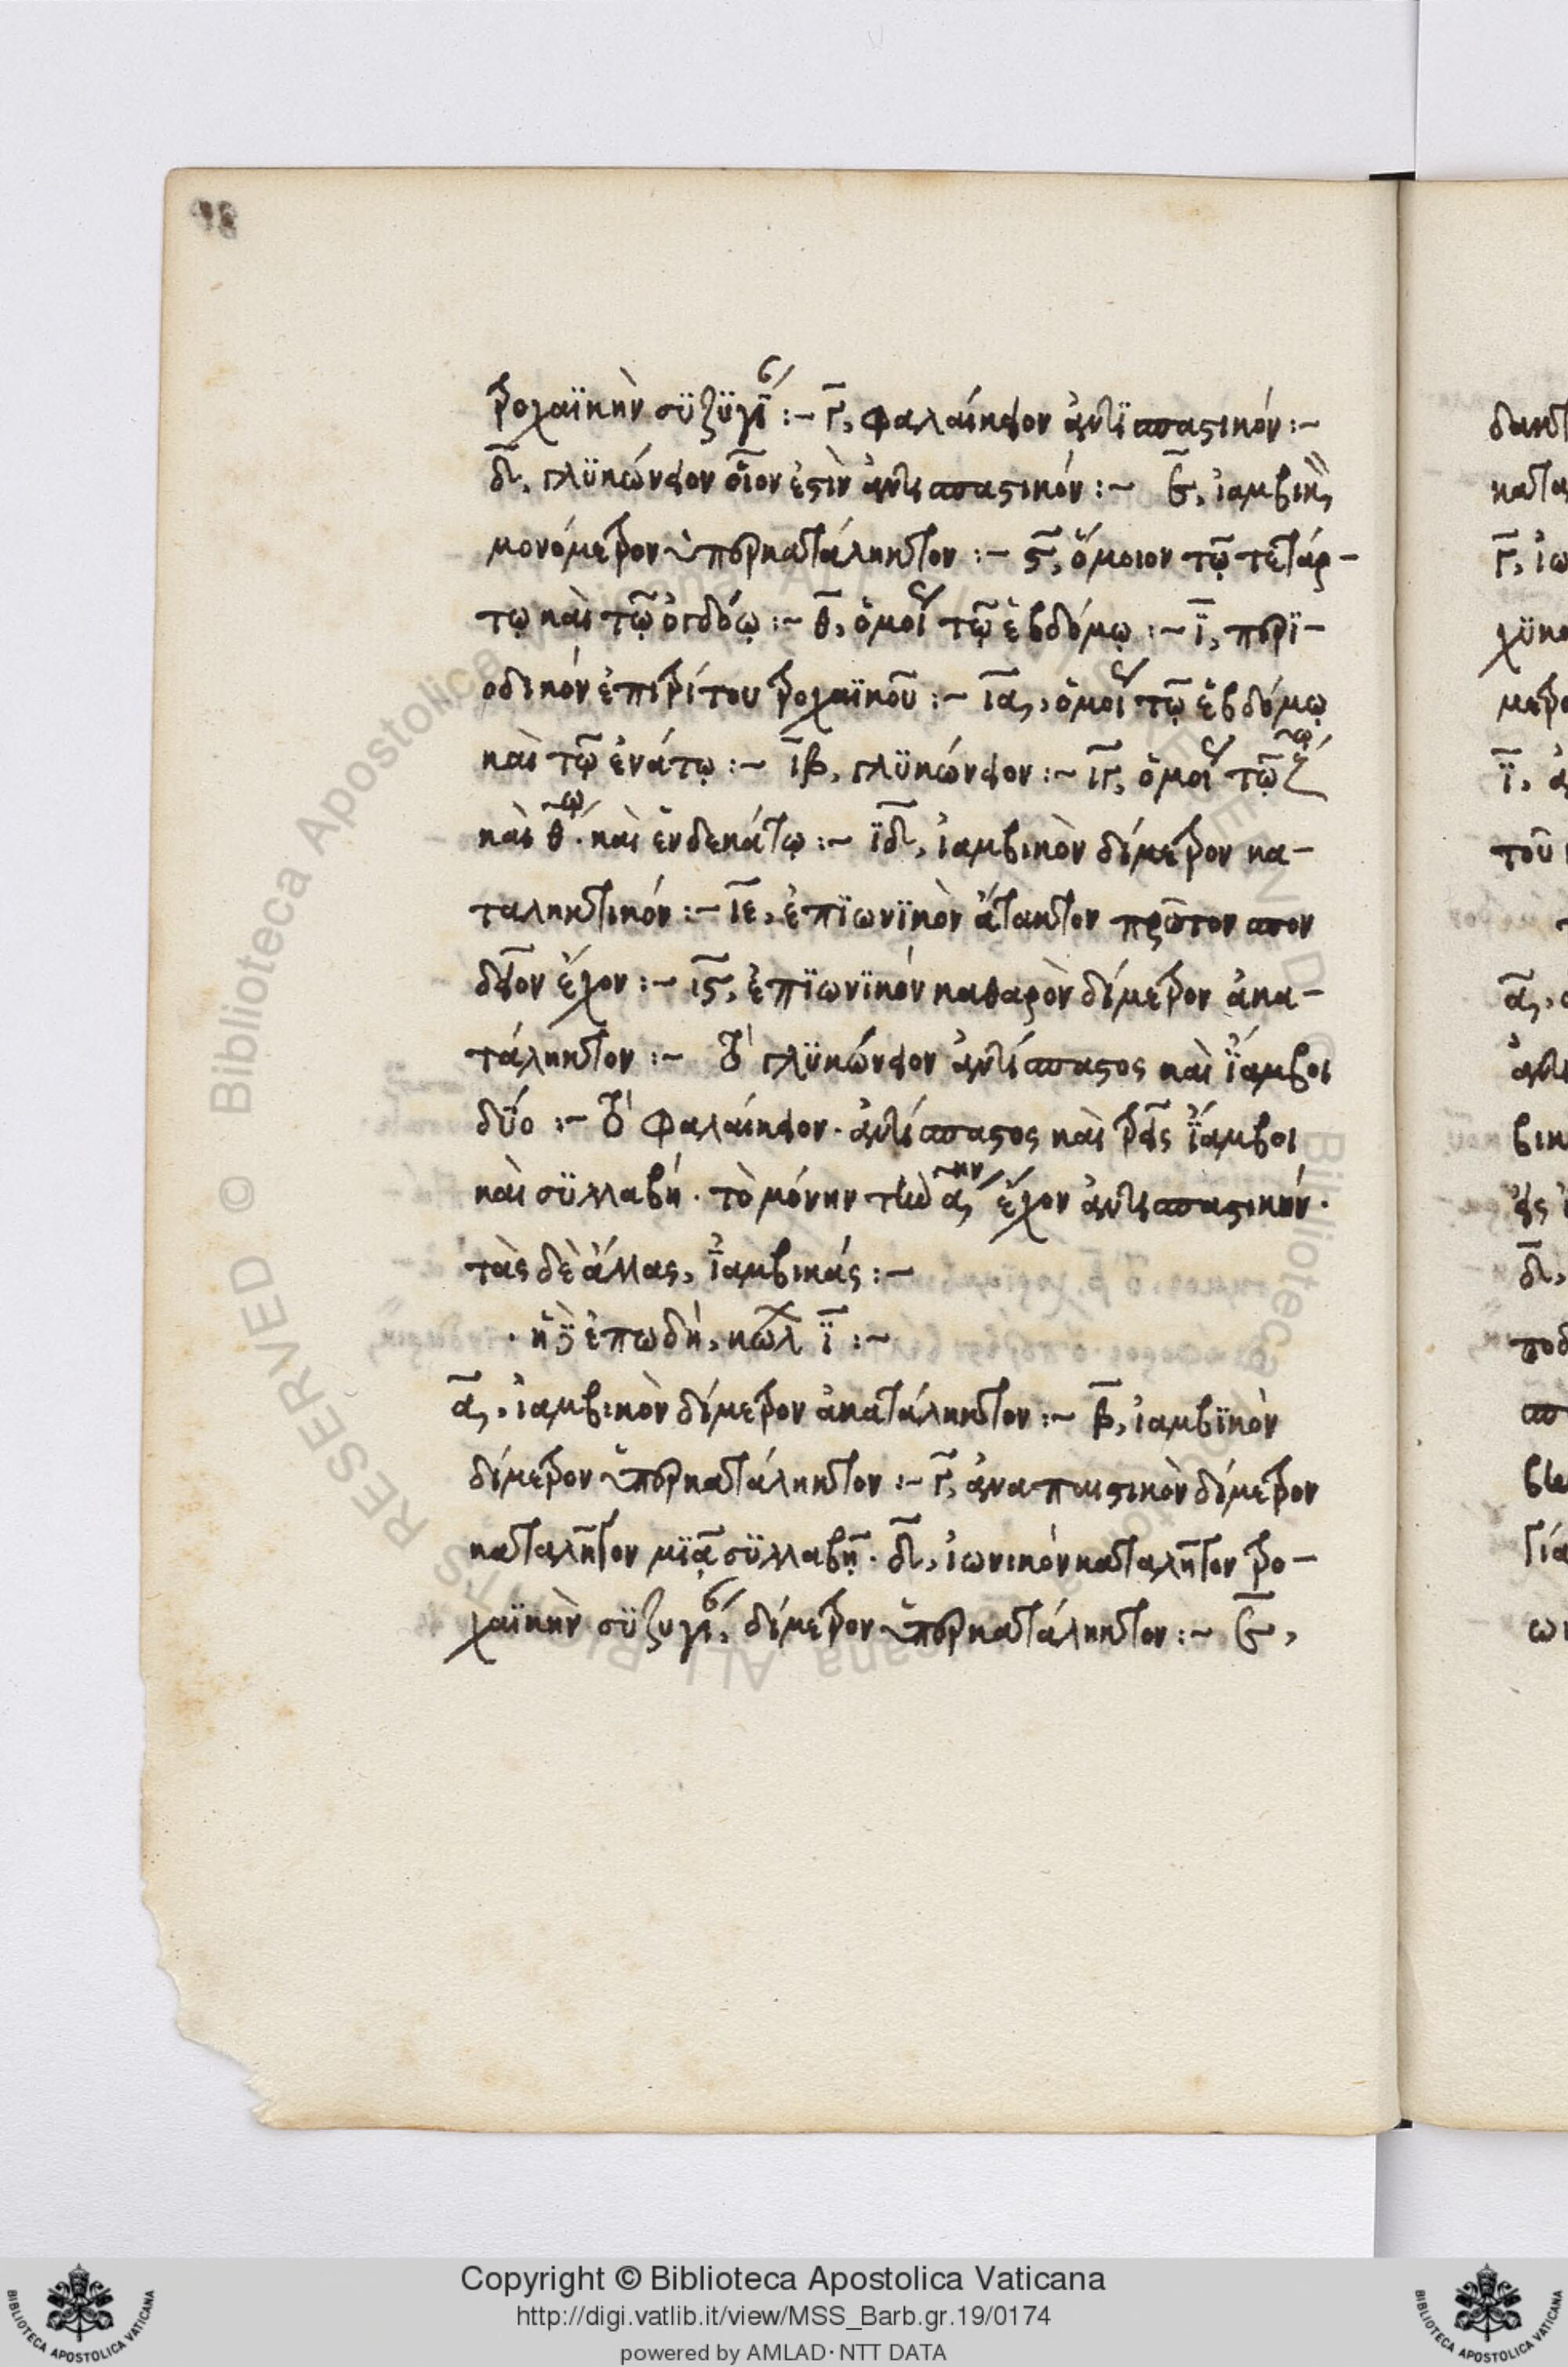 τροχαϊκὴν σϋζϋγί :~ γ̅, φαλαίκειον ἀντϊσπαστικόν :~
δ̅, γλϋκώνειον οἷον ἐστὶν ἀντισπαστικόν :~ ε̅, ἰαμβικὸν
μονόμετρον ὑπερκατάληκτον :~ ϛ̅, ὅμοιον τῷ τετάρ-
τῳ καὶ τῷ ὀγδόῳ :~ θ̅, ὅμοι τῷ ἑβδόμῳ :~ ϊ̅, περϊ-
οδικόν ἐπιτρίτου τροχαϊκοῦ :~ ια̅, ὅμοι τῷ ἑβδόμῳ
καὶ τῷ ἐνάτῳ :~ ιβ̅, γλϋκώνειον :~ ιγ̅, ὅμοι τῷ ζῳ
καὶ θῳ· καὶ ἑνδεκάτῳ :~ ϊδ̅, ἰαμβικὸν δίμετρον κα-
ταληκτικόν :~ ιε̅, ἐπϊωνϊκὸν ἄτακτον πρῶτον σπον
δεῖον ἔχον :~ ιϛ̅, ἐπϊωνϊκόν καθαρὸν δίμετρον ἀκα-
τάληκτον :~ τὸ γλϋκώνειον ἀντίσπαστος καὶ ἴαμβοι
δύο :~ τὸ φαλαίκειον· ἀντίσπαστος καὶ τρεῖς ἴαμβοι
καὶ σϋλλαβή· τὸ μόνην τὴν α̅ην ἔχον ἀντισπαστικήν·
τὰς δὲ ἄλλας, ἰαμβικάς :~
· ἡ δὲ ἐπωδή, κώλ ϊ̅ :~
α̅, ἰαμβικὸν δίμετρον ἀκατάληκτον :~ β̅, ἰαμβϊκὸν
δίμετρον ὑπερκατάληκτον :~ γ̅, ἀναπαιστικὸν δίμετρον
καταλῆτον μϊᾷ σϋλλαβῇ· δ̅, ἰωνικόν καταλῆτον τρο-
χαϊκὴν σϋζυγί, δίμετρον ὑπερκατάληκτον :~ ε̅,
Copyright © Biblioteca Apostolica Vaticana
http://digi.vatlib.it/view/MSS_Barb.gr.19/0174
powered by AMLAD · NTT DATA